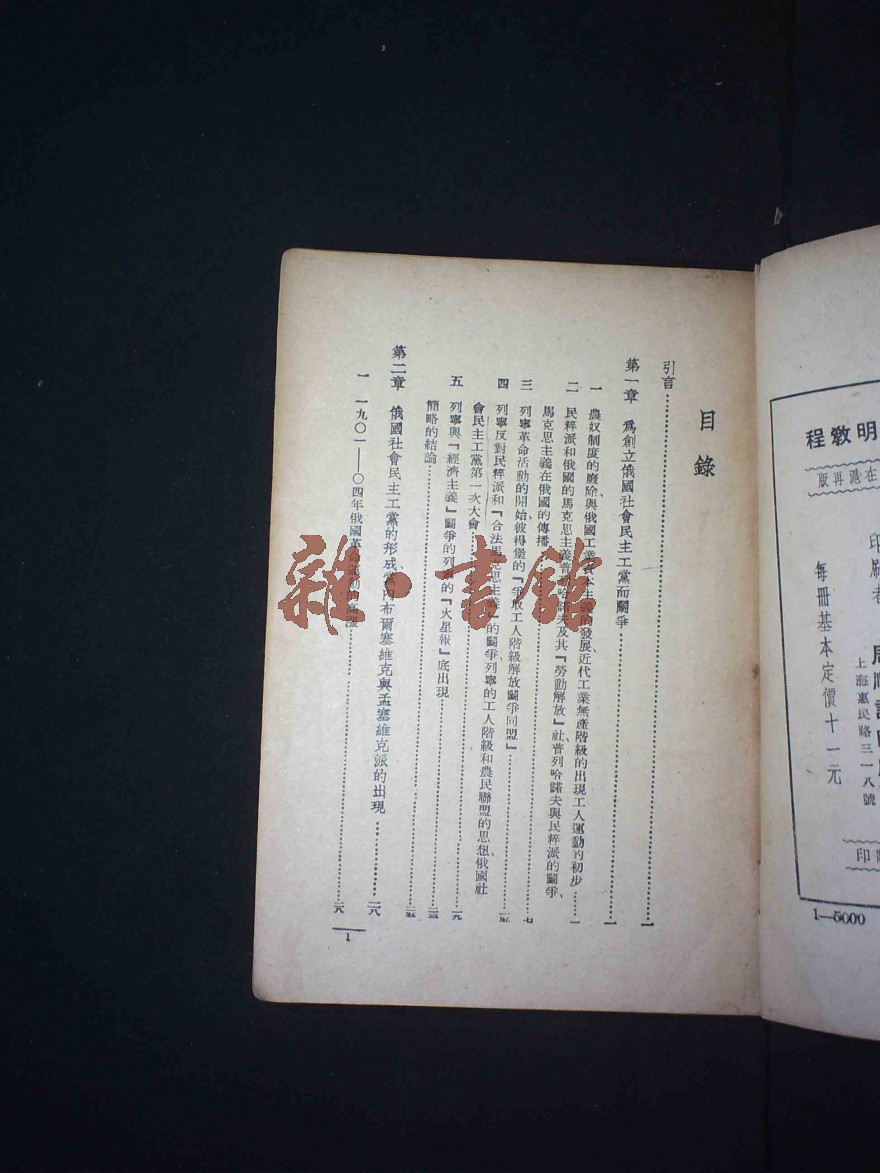 目錄
引言……一
第一章 爲創立俄國社會民主工黨而鬭爭……一
一 農奴制度的廢除與俄國工業資本主義的發展、近代工業無產階級的出現工人運動的初步……一
二 民粹派和俄國的馬克思主義普列哈諾夫及其『勞動解放』社、普列哈諾夫與民粹派的鬭爭、
馬克思主義在俄國的傳播……七
三 列寧革命活動的開始、彼得堡的『爭取工人階級解放鬭爭同盟』
四 列寧反對民粹派和『合法馬克思主義』的鬭爭、列寧的工人階級和農民聯盟的思想、俄國社
會民主工黨第一次大會……一九
五 列寧與『經濟主義』鬭爭的列寧的『火星報』底出現
簡略的結論
第二章 俄國社會民主工黨的形成、黨內布爾塞維克與孟塞維克派的出現……二八
一 一九〇一——〇四年俄國革命運動的高漲……二八
1
雜·書館
明教程
在滬再版
印刷者
周順記
上海惠民路三一八號
每冊基本定價十一元
印
1—5000